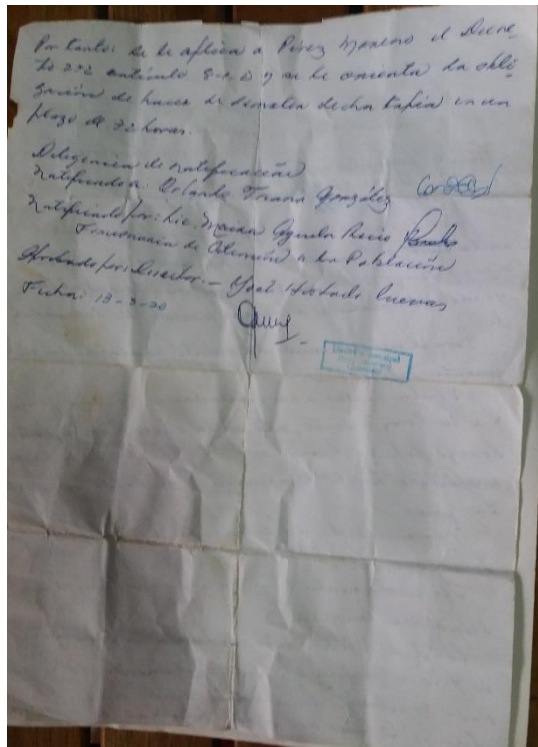 Por tanto: se le aplica a Pérez Moreno el Decre-
to 272 artículo y se le orienta la obli-
gación de hacer de dicha tapia en un
plazo de 72 horas.
Diligencia de notificación
Notificado a: Orlando González
Notificado por: Lic. Recio
Funcionaria de Atención a la Población
Aprobado por: Director.- Yoel Hurtado Cuevas
Fecha: 13-3-20